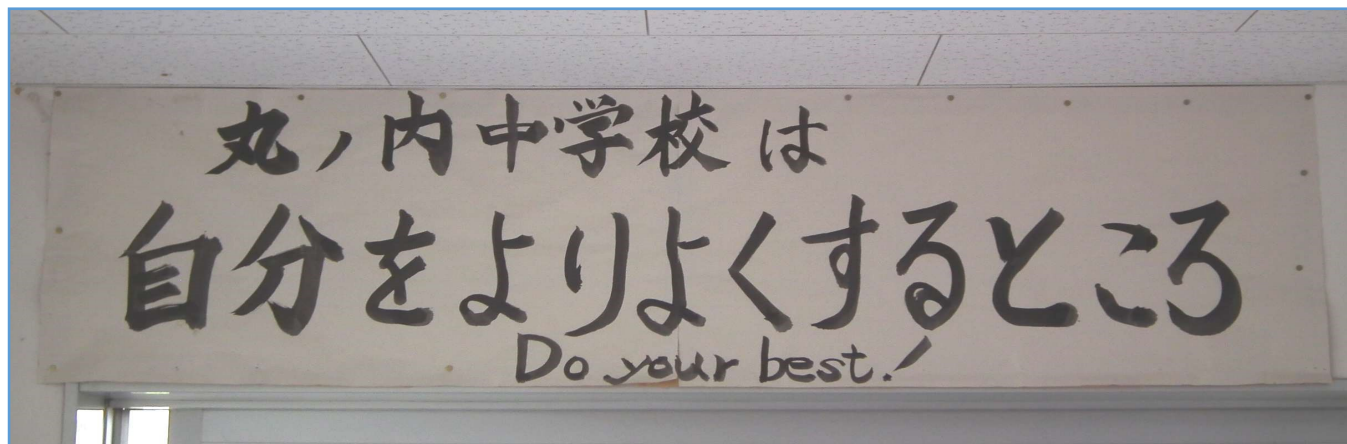 丸ノ内中学校は
自分をよりよくするところ
Do your best.!